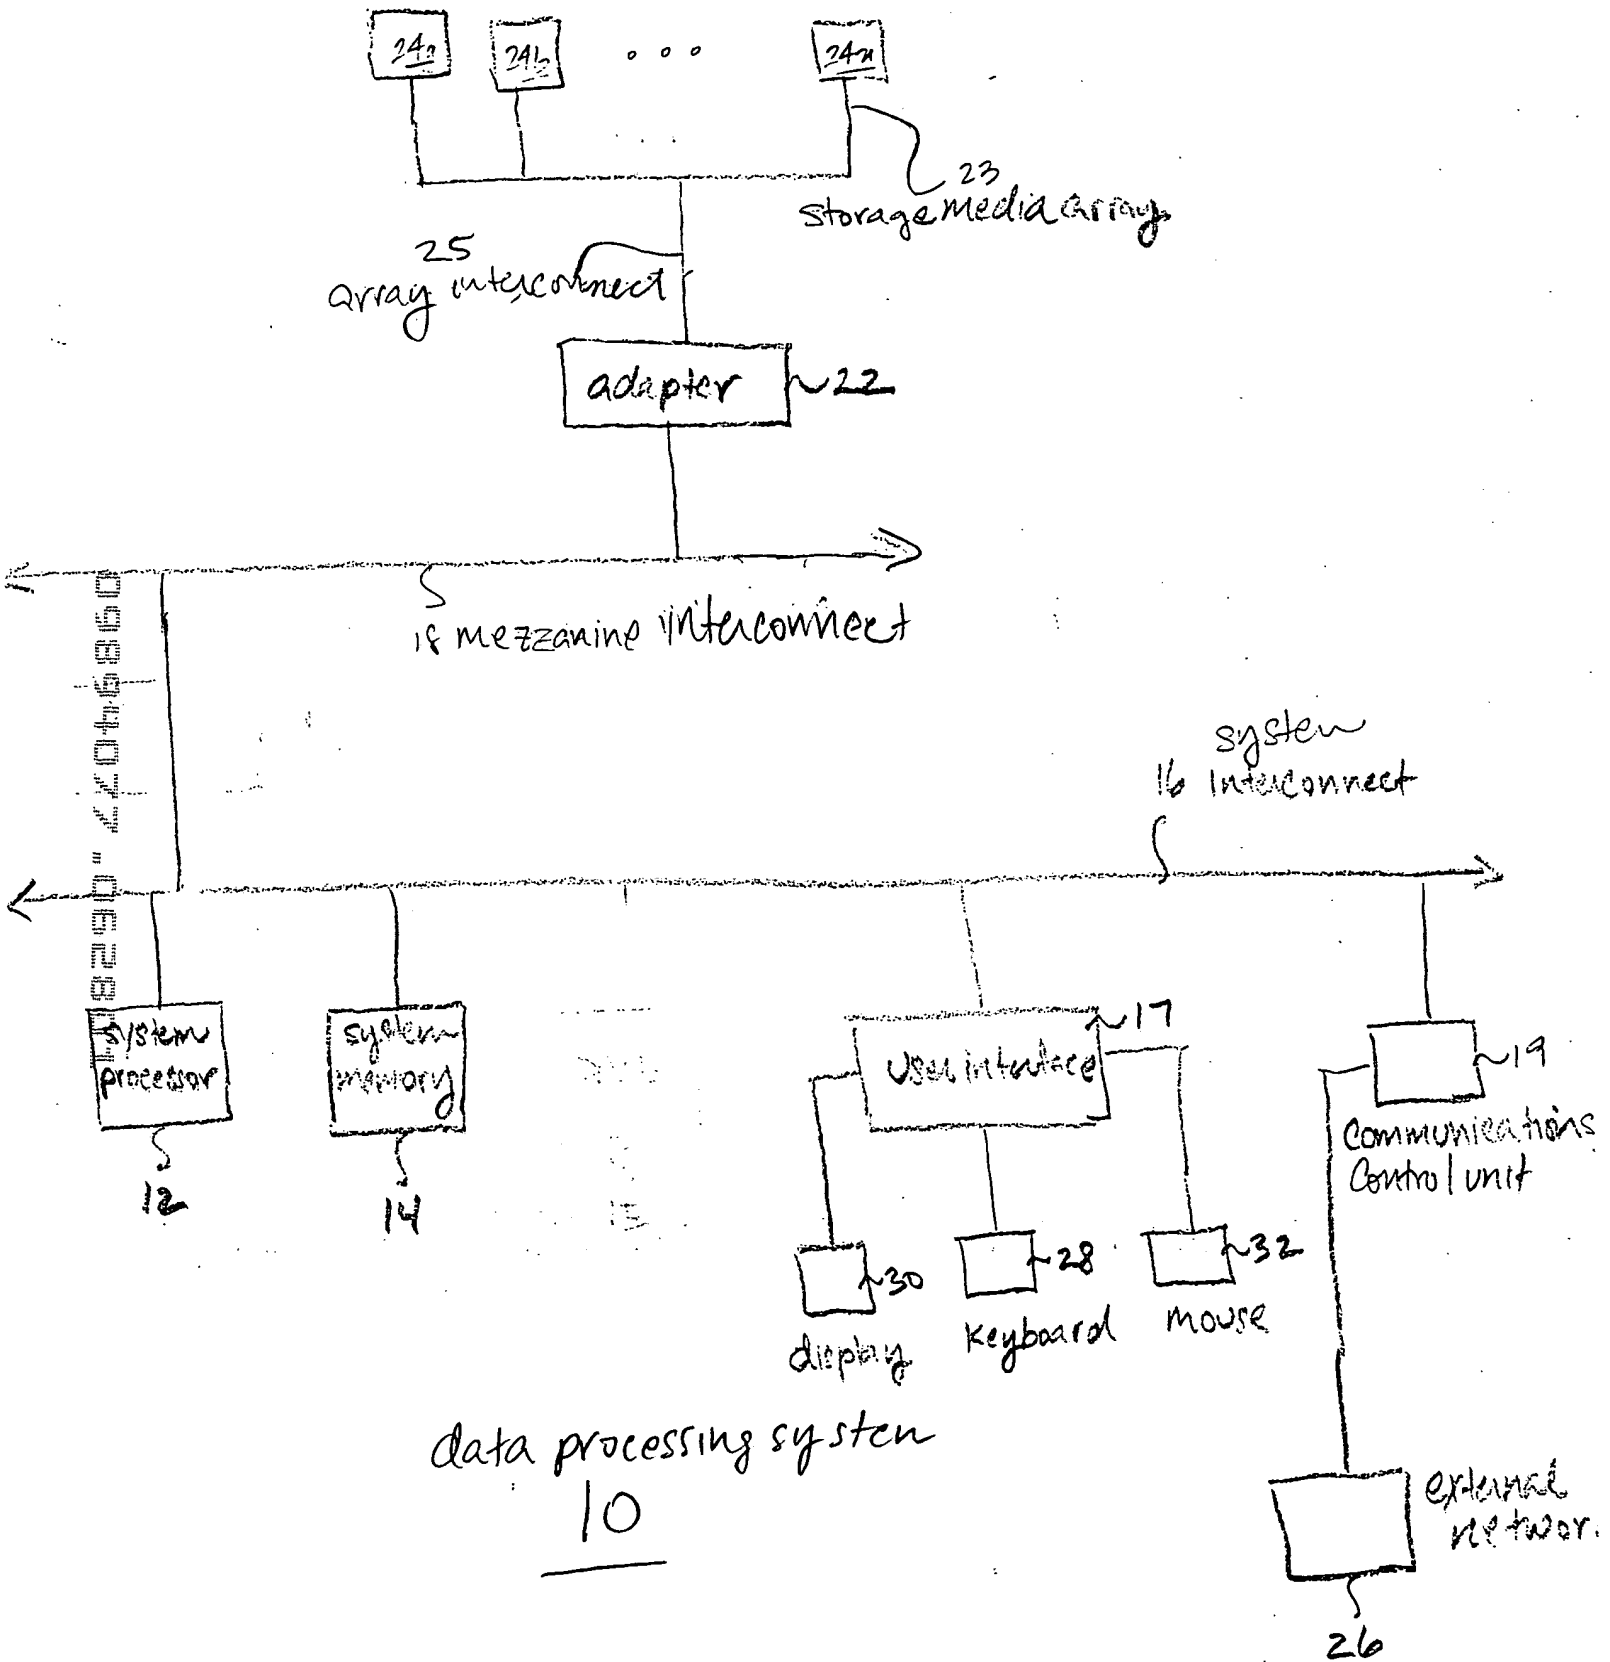 24a 24b 24n
23
storage media array
25
array interconnect
adapter 22
18 mezzanine interconnect
system
16 interconnect
system
processor
12
system
memory
14
user interface 17
19
communications
control unit
30
display
28
keyboard
32
mouse
data processing system
10
external
networ
26